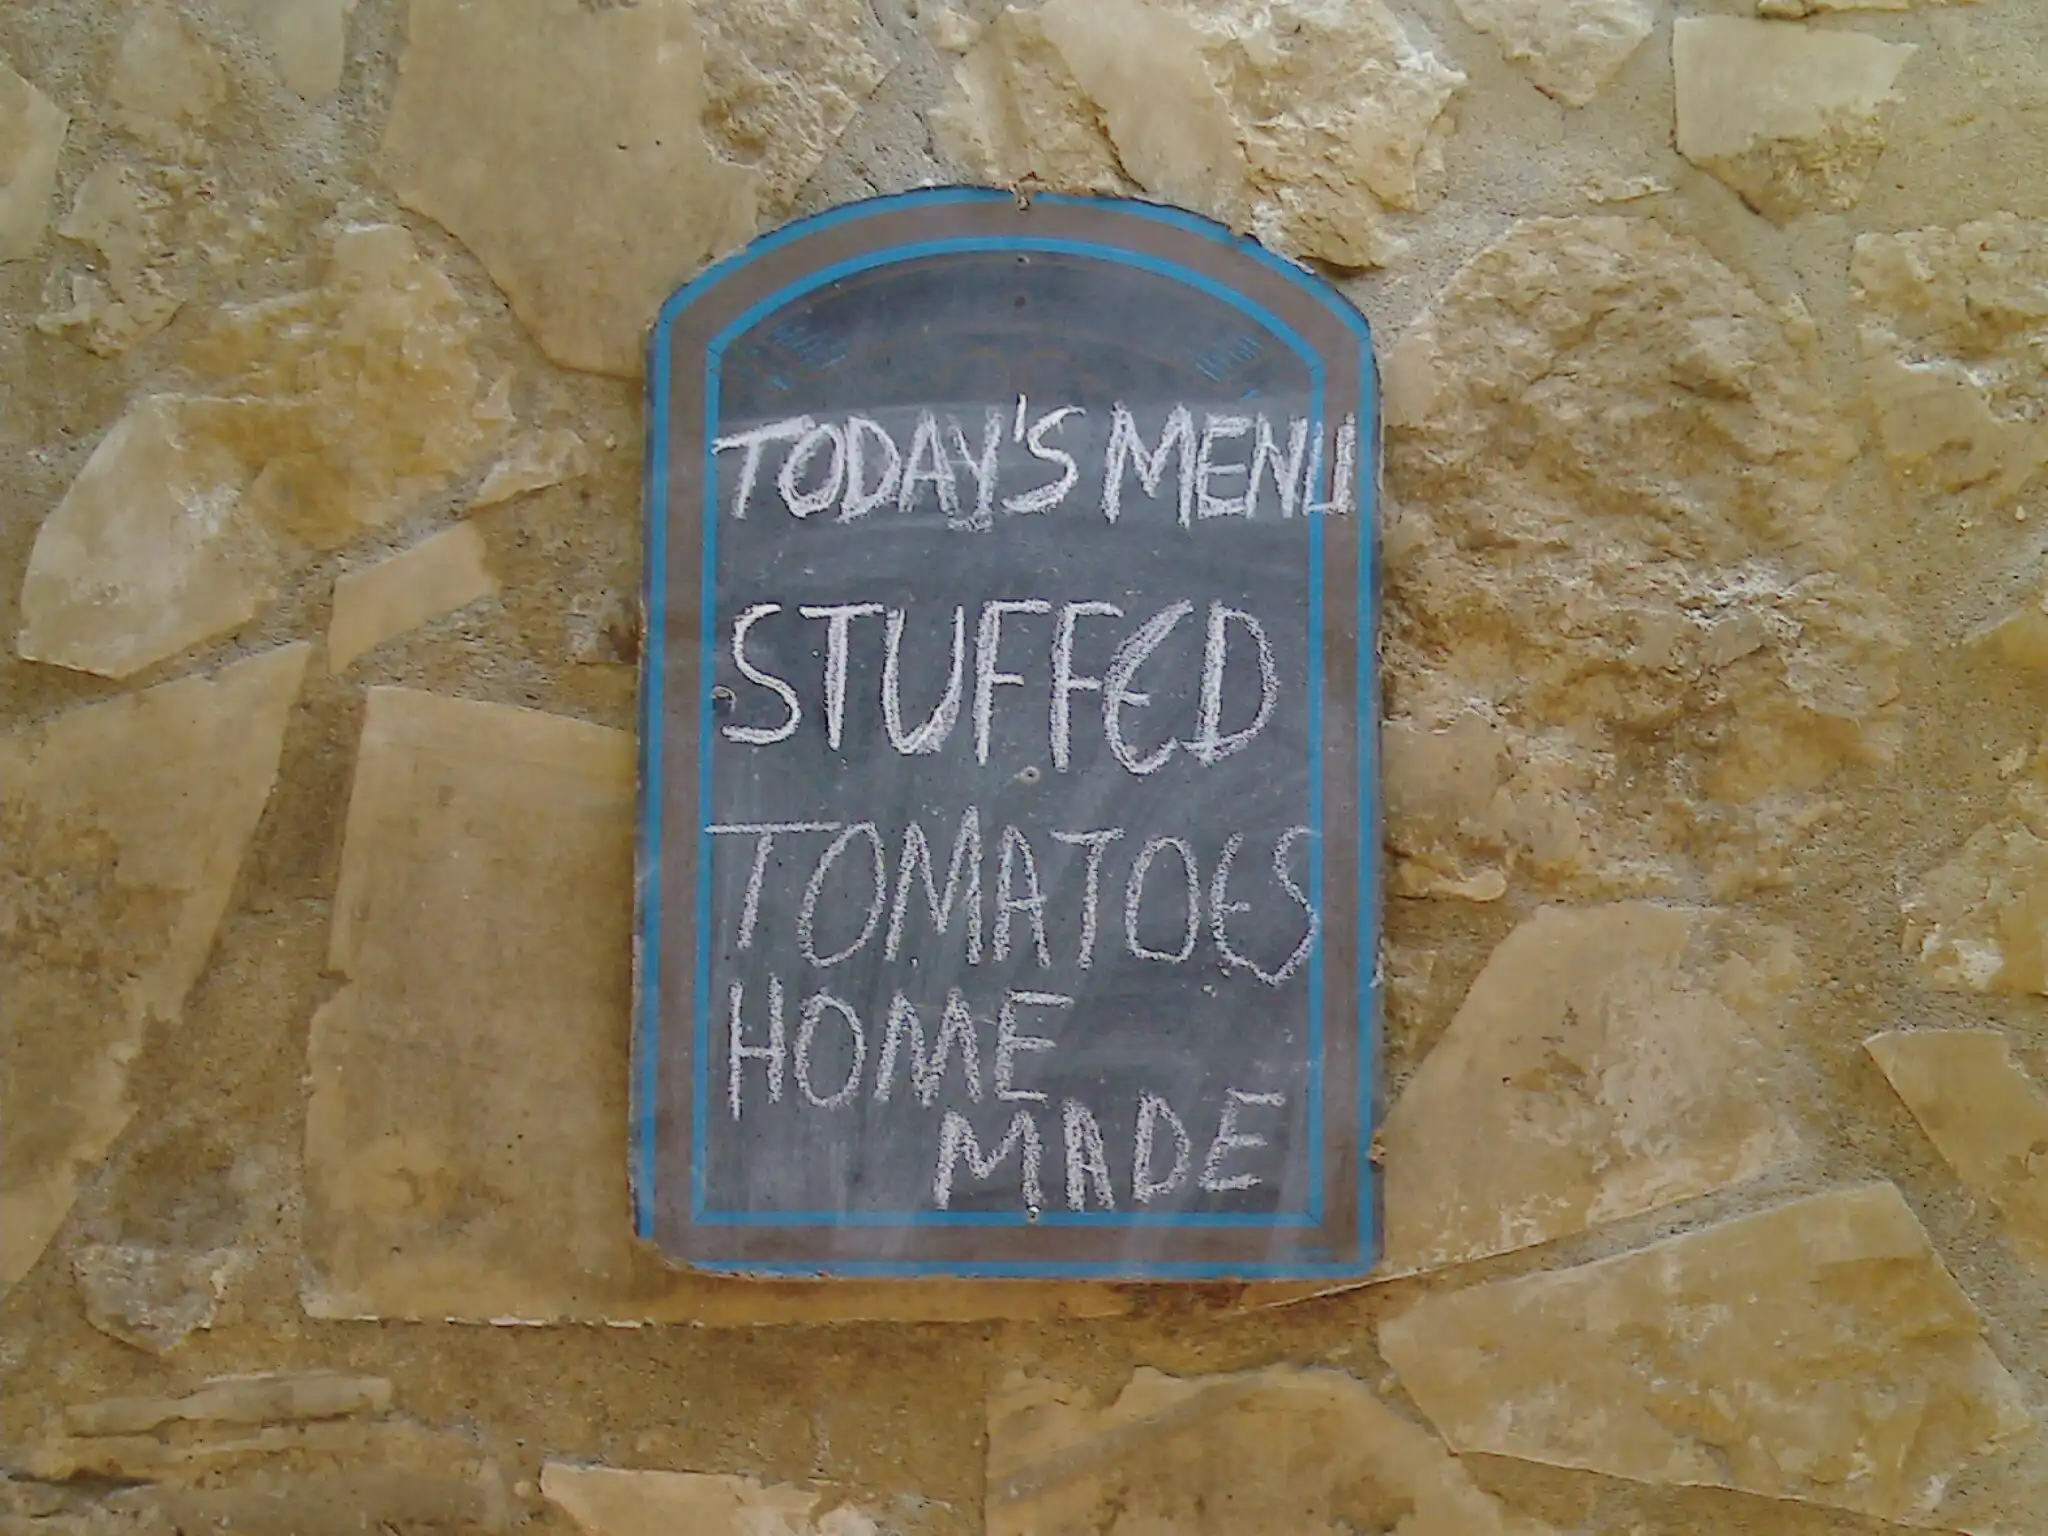 TODAY'S MENU
STUFFED
TOMATOES
HOME
MADE